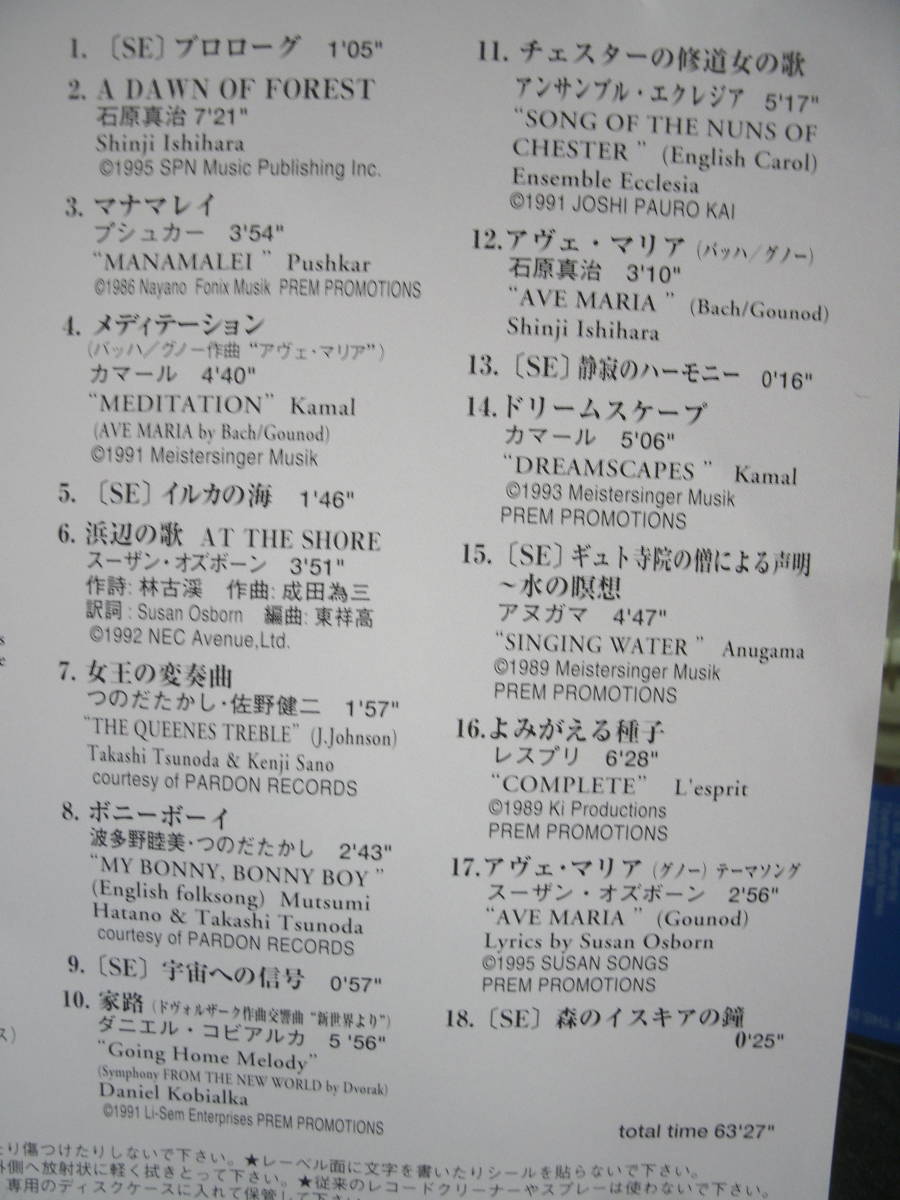 1. 〔SE〕プロローグ 1'05"
2. A DAWN OF FOREST
石原真治 7'21"
Shinji Ishihara
©1995 SPN Music Publishing Inc.
3. マナマレイ
プシュカー 3'54"
"MANAMALEI " Pushkar
©1986 Nayano Fonix Musik PREM PROMOTIONS
4. メディテーション
(バッハ/グノー作曲 "アヴェ・マリア")
カマール 4'40"
"MEDITATION" Kamal
(AVE MARIA by Bach/Gounod)
©1991 Meistersinger Musik
5. 〔SE〕イルカの海 1'46"
6. 浜辺の歌 AT THE SHORE
スーザン・オズボーン 3'51"
作詩: 林古渓 作曲: 成田為三
訳詞: Susan Osborn 編曲: 東祥高
©1992 NEC Avenue,Ltd.
7. 女王の変奏曲
つのだたかし・佐野健二 1'57"
"THE QUEENES TREBLE" (J.Johnson)
Takashi Tsunoda & Kenji Sano
courtesy of PARDON RECORDS
8. ボニーボーイ
波多野睦美・つのだたかし 2'43"
"MY BONNY, BONNY BOY "
(English folksong) Mutsumi
Hatano & Takashi Tsunoda
courtesy of PARDON RECORDS
9. 〔SE〕宇宙への信号 0'57"
10. 家路 (ドヴォルザーク作曲交響曲 "新世界より")
ダニエル・コビアルカ 5 '56"
"Going Home Melody"
(Symphony FROM THE NEW WORLD by Dvorak)
Daniel Kobialka
©1991 Li-Sem Enterprises PREM PROMOTIONS
11. チェスターの修道女の歌
アンサンブル・エクレジア 5'17"
"SONG OF THE NUNS OF
CHESTER " (English Carol)
Ensemble Ecclesia
©1991 JOSHI PAURO KAI
12. アヴェ・マリア (バッハ/グノー)
石原真治 3'10"
"AVE MARIA " (Bach/Gounod)
Shinji Ishihara
13. 〔SE〕静寂のハーモニー 0'16"
14. ドリームスケープ
カマール 5'06"
"DREAMSCAPES " Kamal
©1993 Meistersinger Musik
PREM PROMOTIONS
15. 〔SE〕ギュト寺院の僧による声明
～水の瞑想
アヌガマ 4'47"
"SINGING WATER " Anugama
©1989 Meistersinger Musik
PREM PROMOTIONS
16. よみがえる種子
レスプリ 6'28"
"COMPLETE" L'esprit
©1989 Ki Productions
PREM PROMOTIONS
17. アヴェ・マリア (グノー) テーマソング
スーザン・オズボーン 2'56"
"AVE MARIA " (Gounod)
Lyrics by Susan Osborn
©1995 SUSAN SONGS
PREM PROMOTIONS
18. 〔SE〕森のイスキアの鐘
0'25"
total time 63'27"
たり傷つけたりしないで下さい。★レーベル面に文字を書いたりシールを貼らないで下さい。
外側へ放射状に軽く拭きとって下さい。★従来のレコードクリーナーやスプレーは使わないで下さい。
専用のディスクケースに入れて保管して下さい。